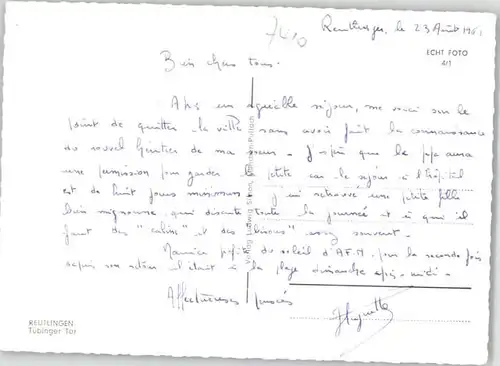 7410
Reutlingen, le 23 Août 1961
ECHT FOTO
4/1
Bien chers tous.
Après un agréable séjour, me voici sur le
point de quitter la ville sans avoir fait la connaissance
du nouvel héritier de ma soeur. J'espère que le papa aura
une permission pour garder la petite car le séjour à l'hôpital
est de huit jours minimum. J'ai retrouvé une petite fille
bien mignonne, qui discute toute la journée et à qui il
faut des "calins" et des "bisous" assez souvent.
Maurice profite du soleil d'A.F.N. pour la seconde fois
depuis son retour il était à la plage dimanche après-midi.
Affectueuses pensées
Huguette
Verlag Ludwig Simon,
REUTLINGEN
Tübinger Tor